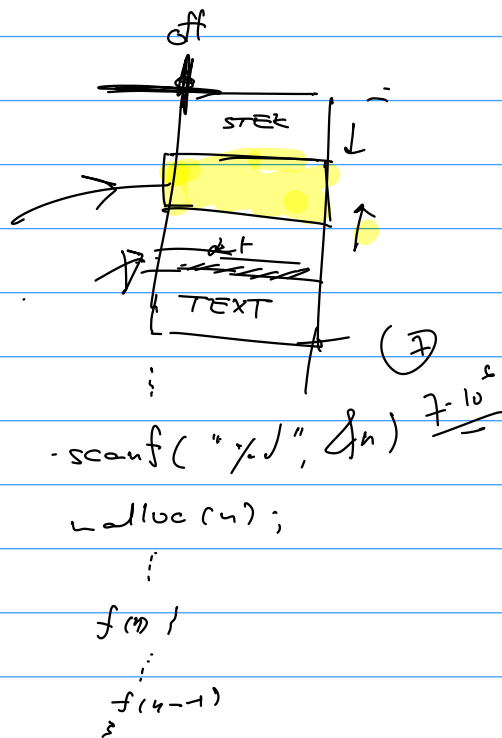 off
STEK
TEXT
7
scanf("%d", &n)
malloc(n);
f(n) {
f(n-1)
}